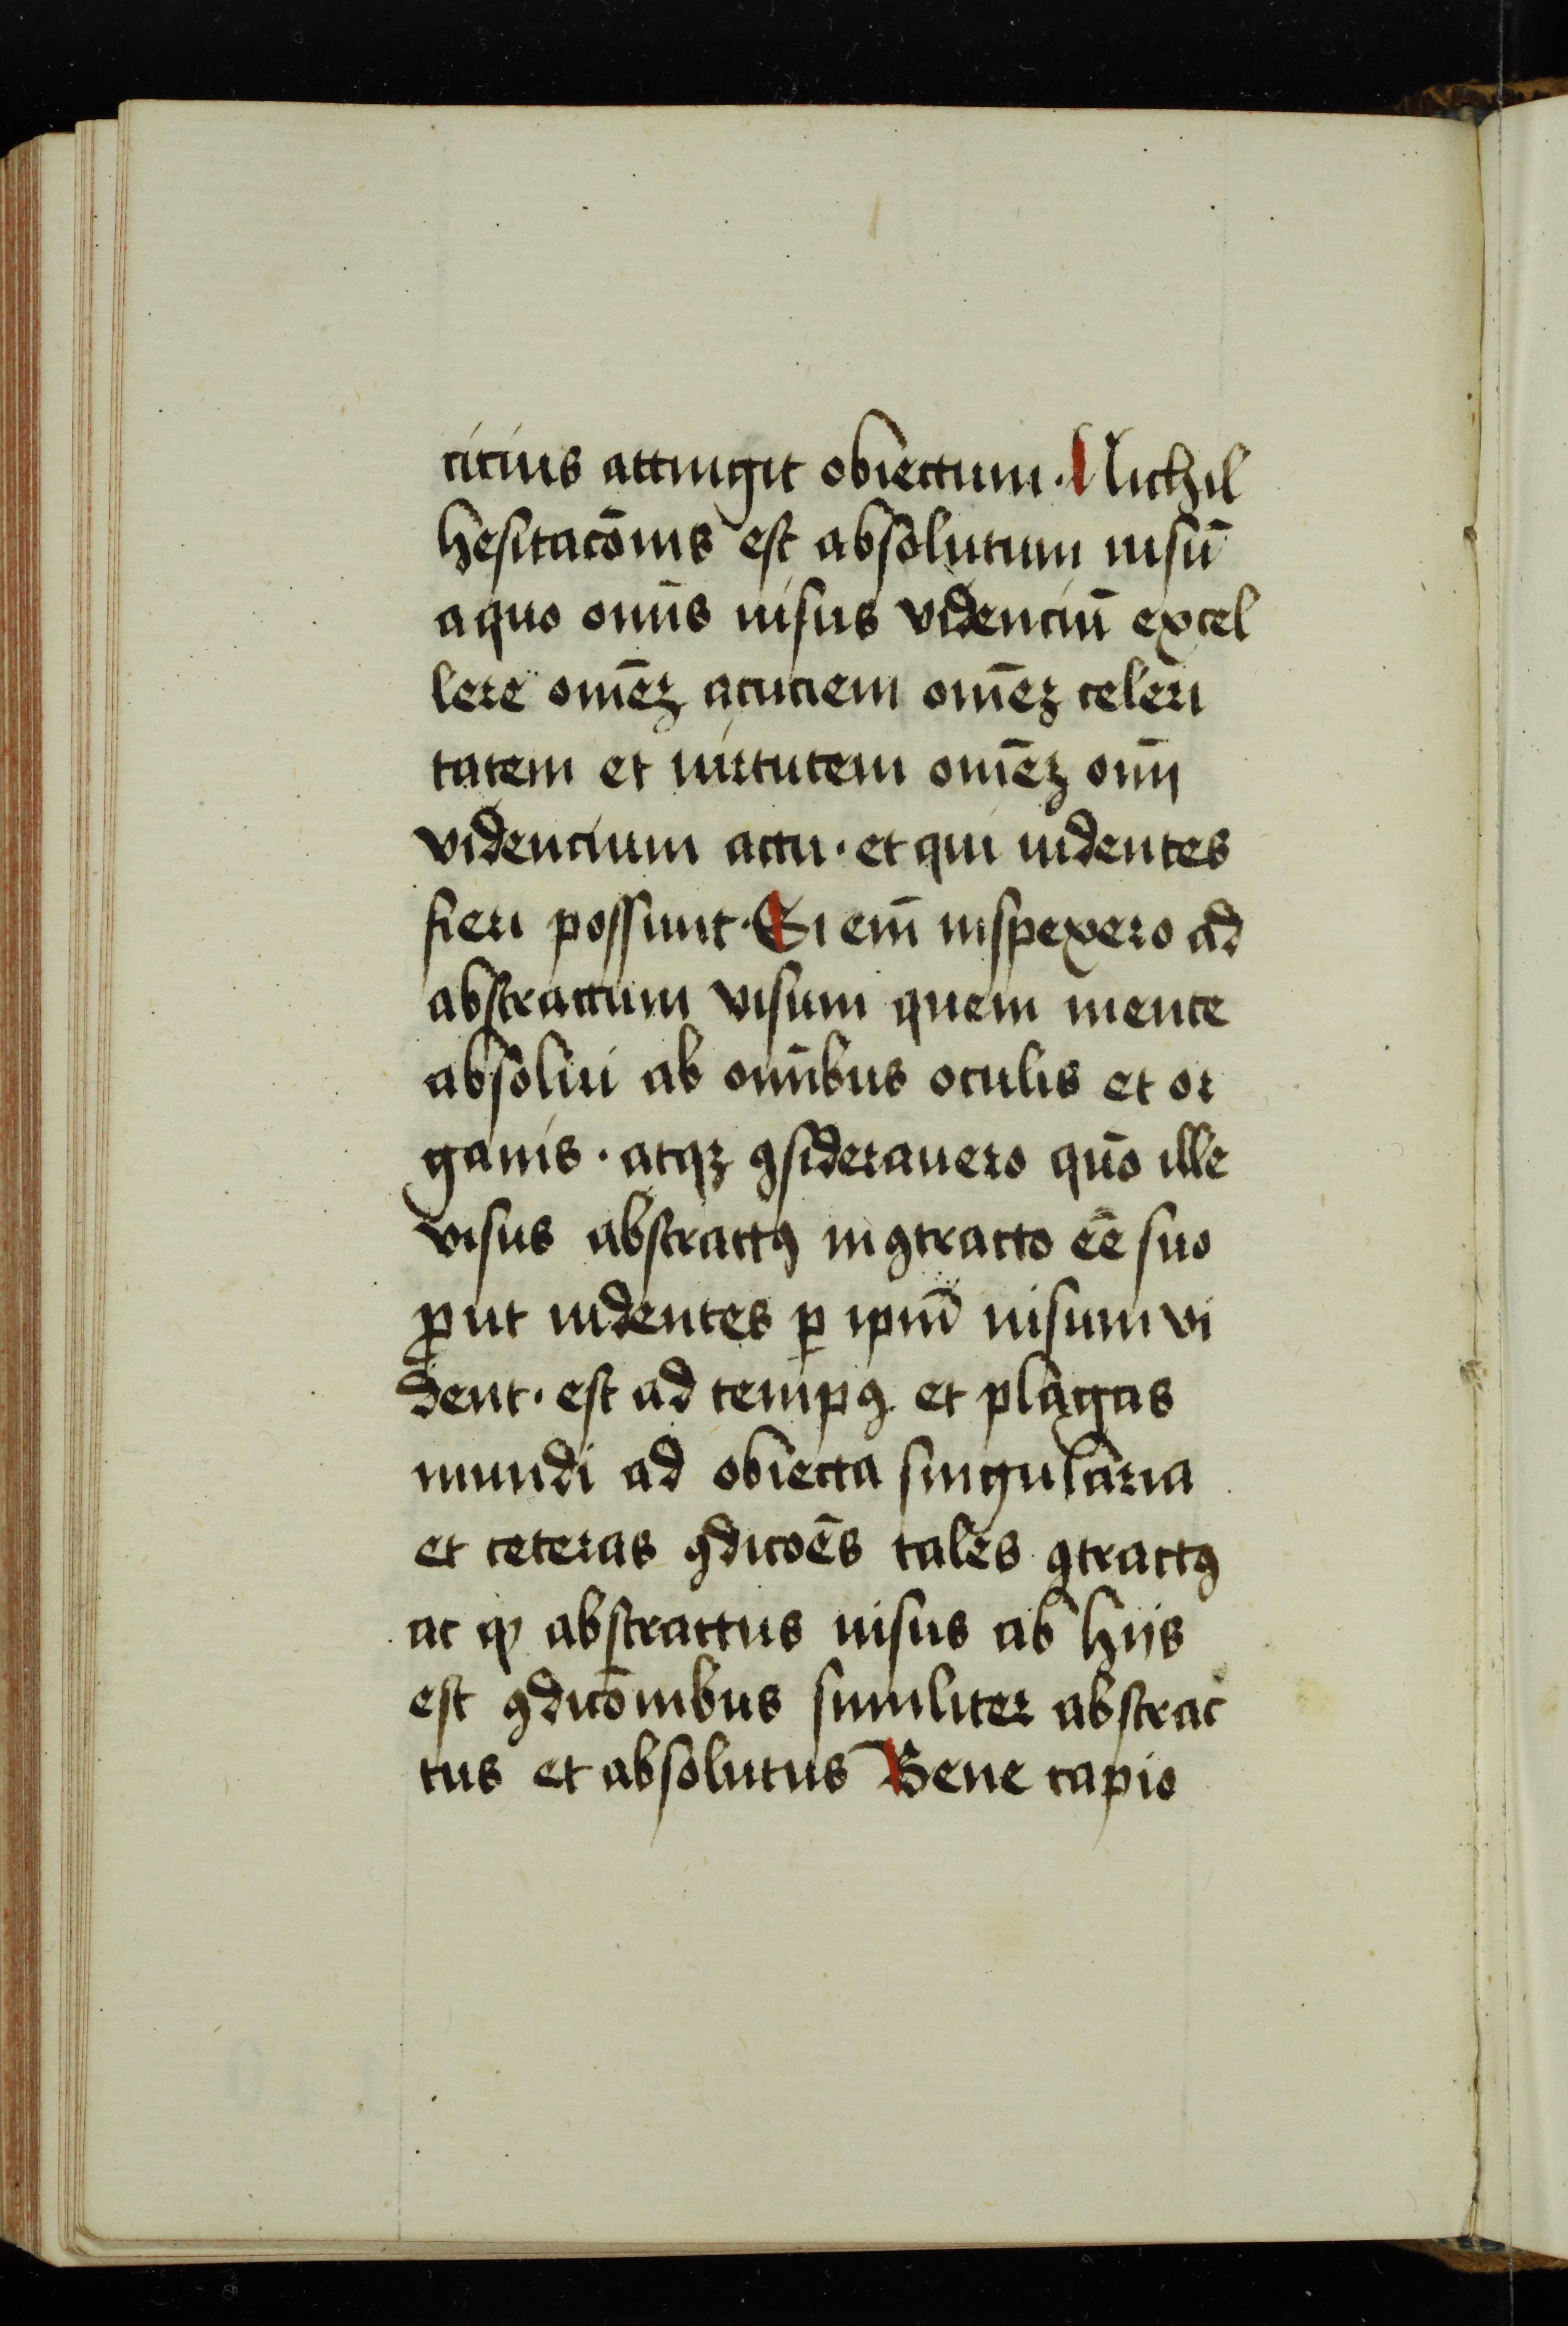 citius attingit obiectum. Nichil
hesitacōnis est absolutum uisū
a quo om̄is uisus videnciū excel
lere om̄eꝫ acuciem om̄eꝫ celeri
tatem et uirtutem om̄eꝫ om̄i
videncium actu. et qui uidentes
fieri possunt. Si em̄ inspexero ad
abstractum visum quem mente
absolui ab om̄ibus oculis et or
ganis. atqꝫ ꝯsiderauero quō ille
visus abstractꝰ in ꝯtracto ēe suo
ꝓut uidentes ꝑ ipm̄ uisum vi
dent. est ad tempꝰ et plagas
mundi ad obiecta singularia
et ceteras ꝯdicoēs tales ꝯtractꝰ
ac ꝙ abstractus uisus ab hijs
est ꝯdicōnibus similiter abstrac
tus et absolutus Bene capio